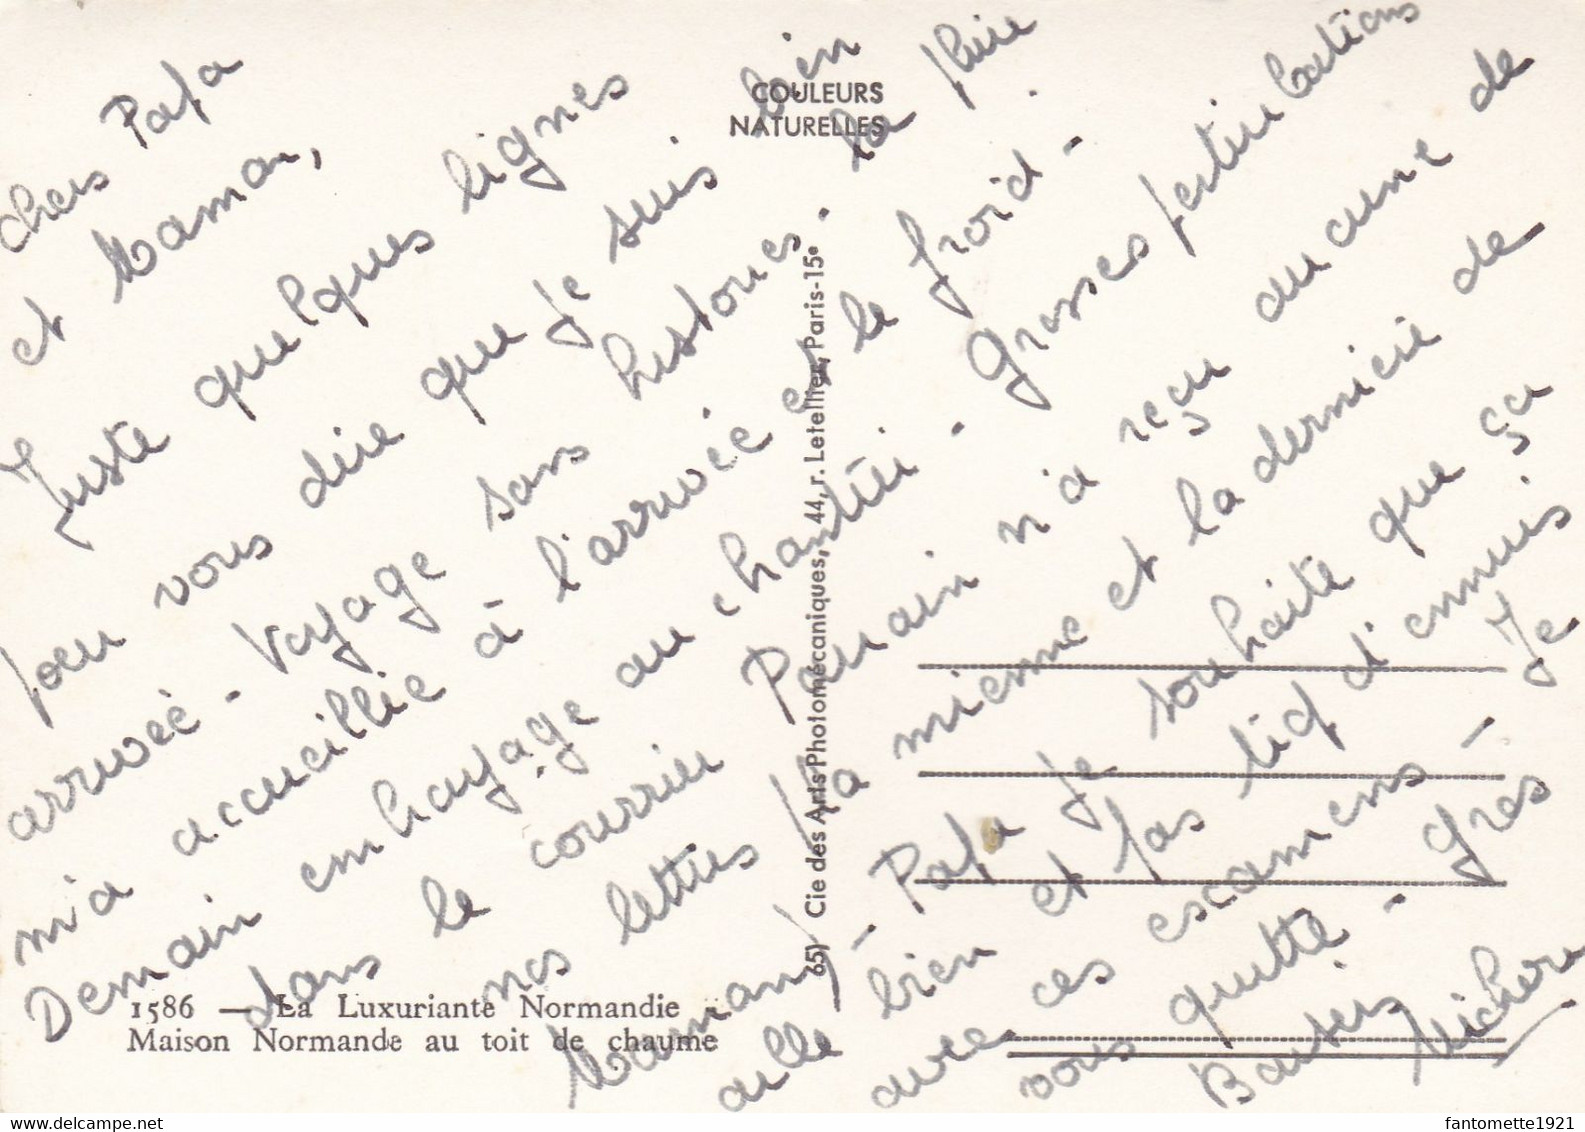 Chers Papa
et Maman,
Juste quelques lignes
pour vous dire que je suis bien
arrivée - Voyage sans histoires - la pluie
m'a accueillie à l'arrivée et le froid -
Demain embauchage au chantier - Grosses perturbations
dans le courrier Parrain n'a reçu aucune de
nos lettres (la mienne et la dernière de
Maman) - Papa je souhaite que ça
aille bien et pas trop d'ennuis
avec ces examens - Je
vous quitte - Gros
Baisers
COULEURS
NATURELLES
65) Cie des Arts Photomécaniques, 44, r. Letellier, Paris-15e
1586 — La Luxuriante Normandie
Maison Normande au toit de chaume
fantomette1921